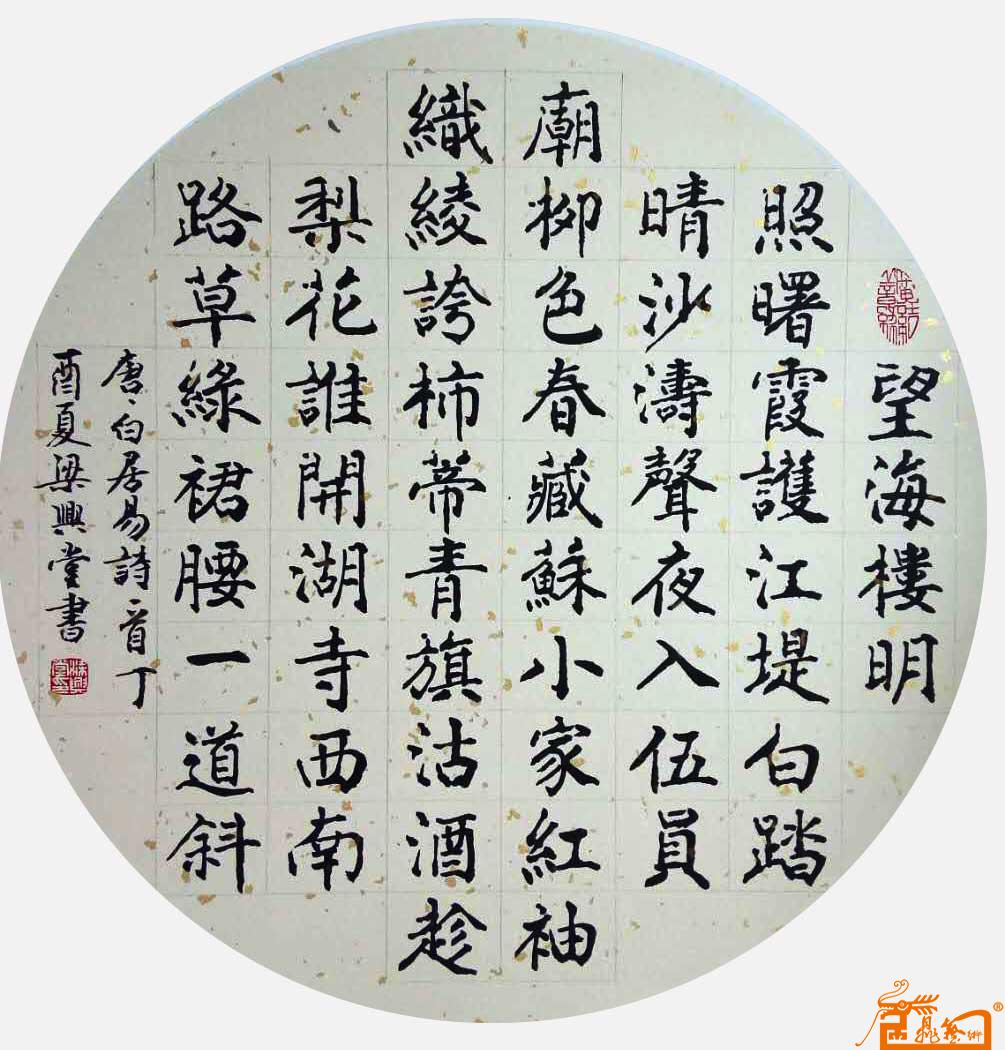 望海樓明
照曙霞護江堤白踏
晴沙濤聲夜入伍員
廟柳色春藏蘇小家紅袖
織綾誇柿蒂青旗沽酒趁
梨花誰開湖寺西南
路草綠裙腰一道斜
唐白居易詩一首丁
酉夏梁興堂書